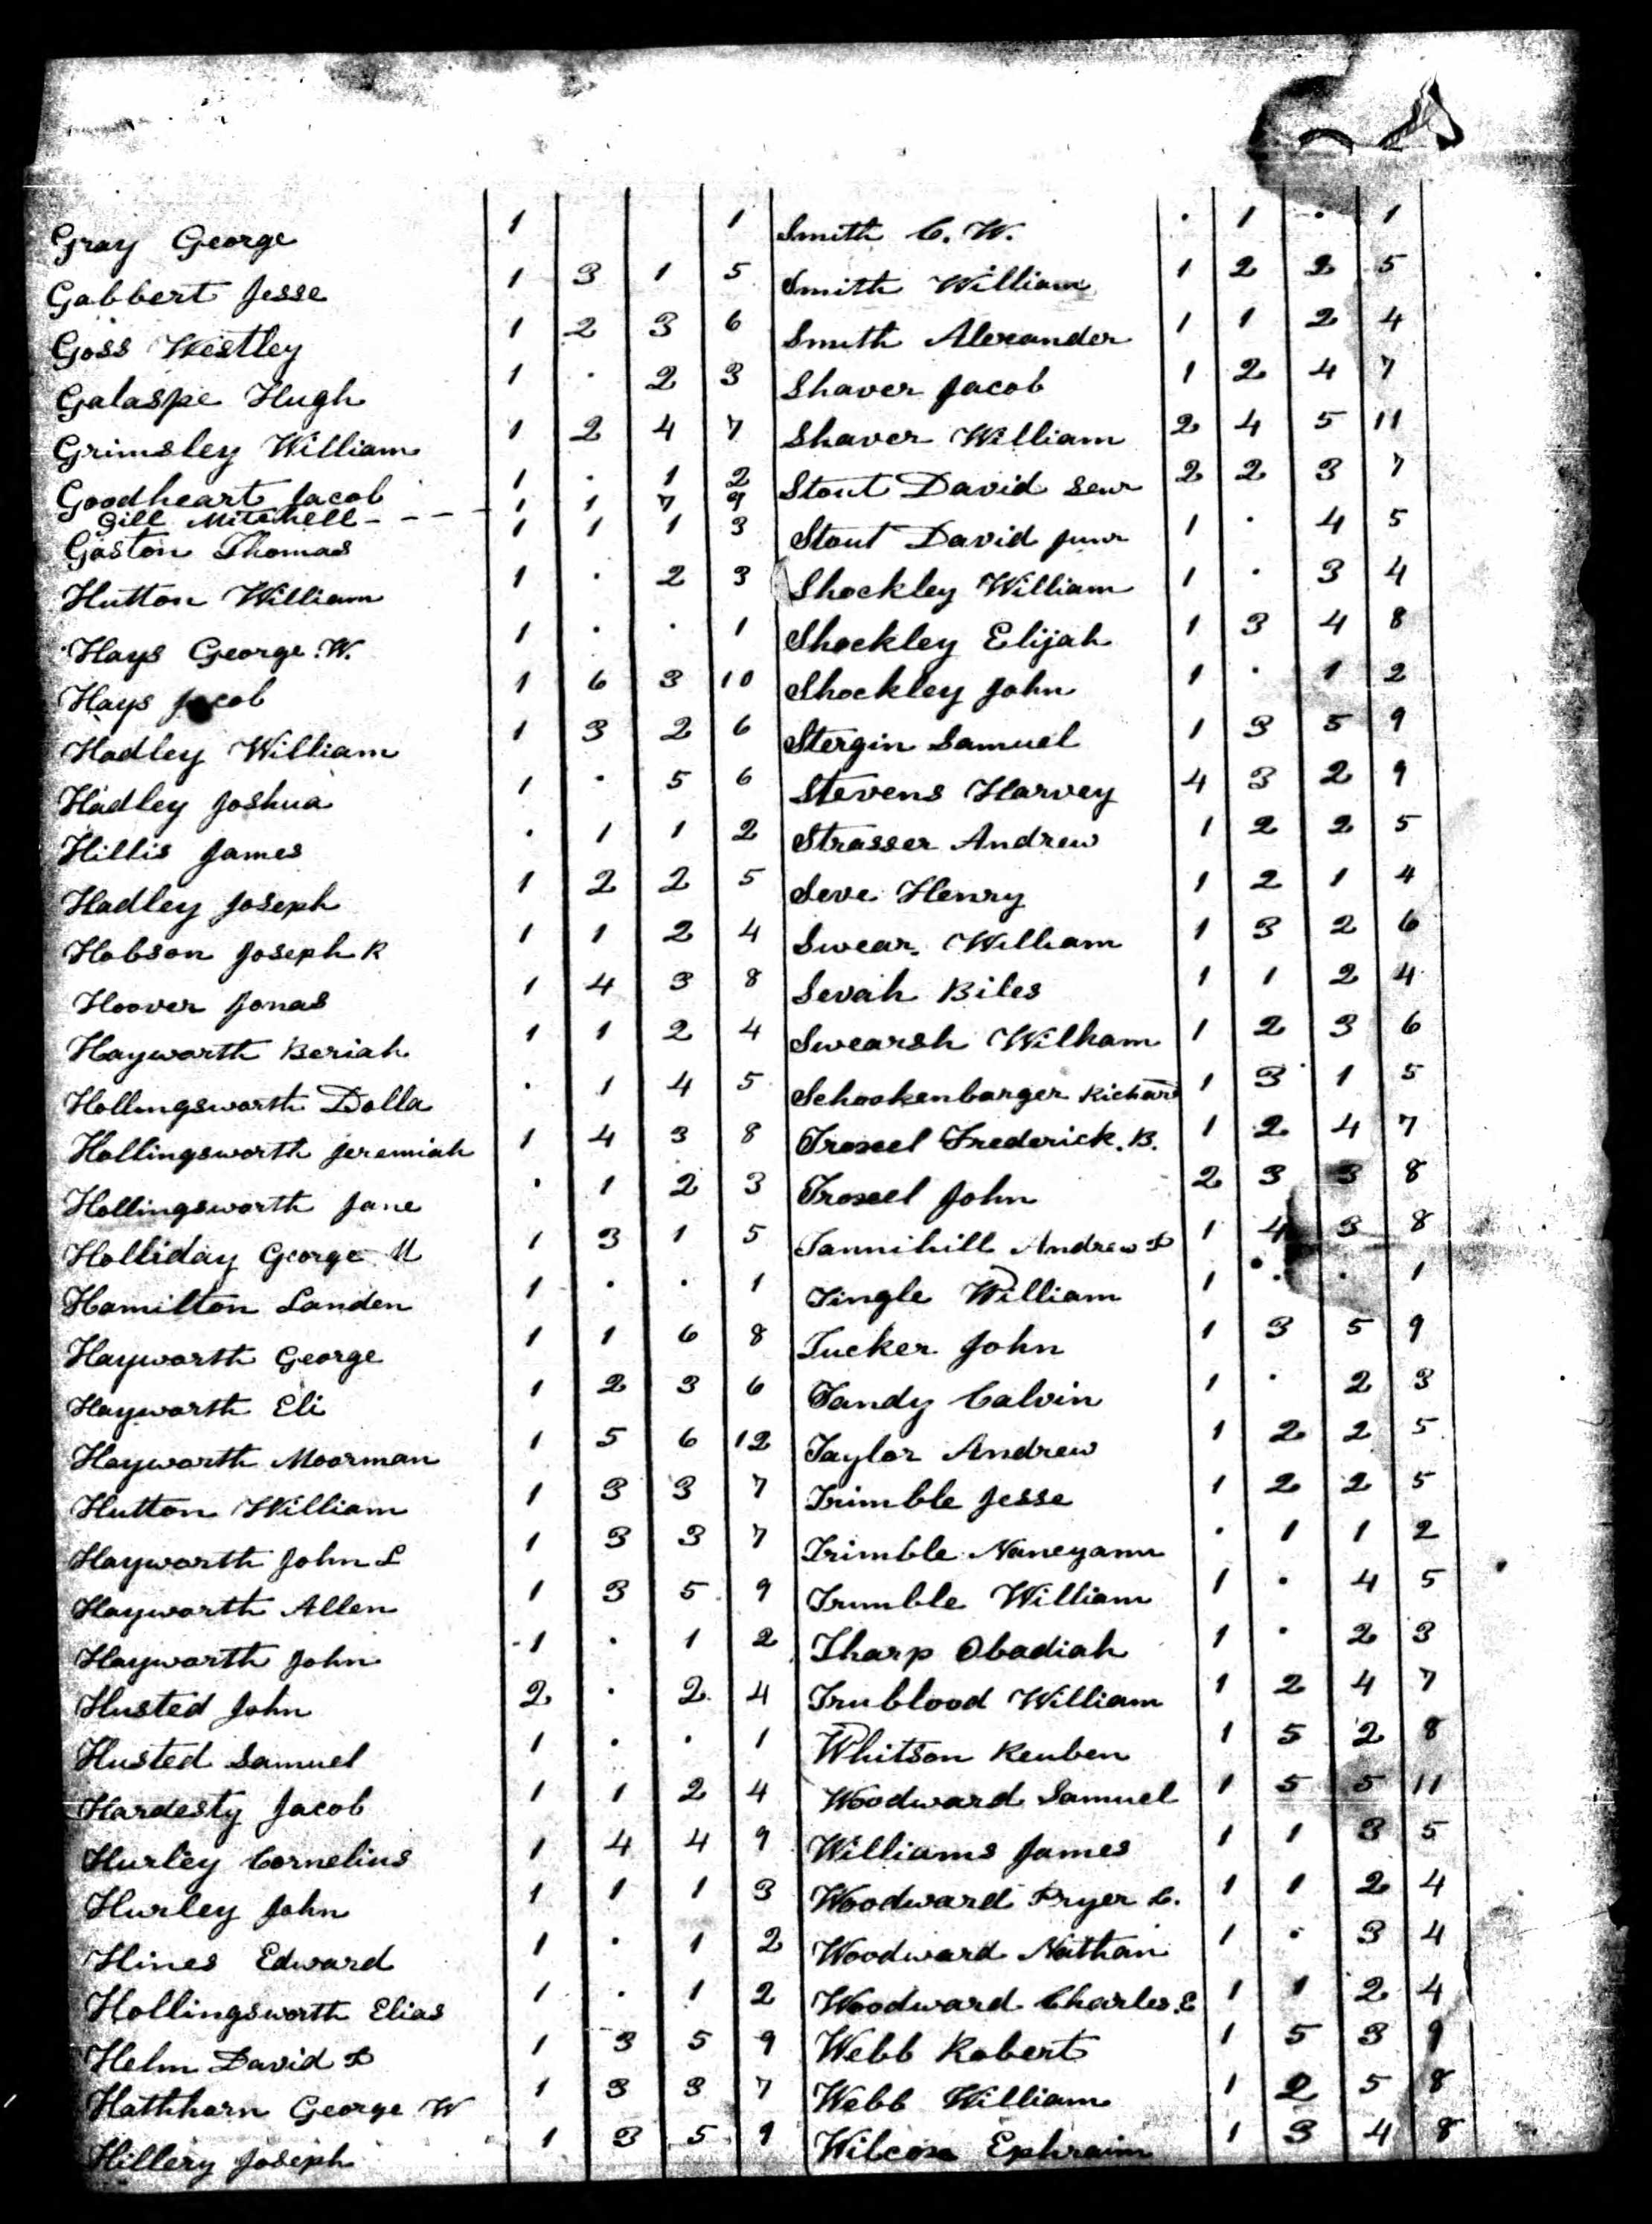 Gray George 1 1 Smith C. W. . 1 . 1
Gabbert Jesse 1 3 1 5 Smith William 1 2 2 5
Goss Westley 1 2 3 6 Smith Alexander 1 1 2 4
Galaspe Hugh 1 . 2 3 Shaver Jacob 1 2 4 7
Grimsley William 1 2 4 7 Shaver William 2 4 5 11
Goodheart Jacob 1 . 1 2 Stout David Senr 2 2 3 7
Gill Mitchell - - - - 1 1 7 9
Gaston Thomas 1 1 1 3 Stout David Junr 1 . 4 5
Hutton William 1 . 2 3 Shockley William 1 . 3 4
Hays George W. 1 . . 1 Shockley Elijah 1 3 4 8
Hays Jacob 1 6 3 10 Shockley John 1 . 1 2
Hadley William 1 3 2 6 Stergin Samuel 1 3 5 9
Hadley Joshua 1 . 5 6 Stevens Harvey 4 3 2 9
Hillis James . 1 1 2 Strasser Andrew 1 2 2 5
Hadley Joseph 1 2 2 5 Seve Henry 1 2 1 4
Hobson Joseph R 1 1 2 4 Swear William 1 3 2 6
Hoover Jonas 1 4 3 8 Sevah Biles 1 1 2 4
Hayworth Beriah 1 1 2 4 Swearsh William 1 2 3 6
Hollingsworth Dolla . 1 4 5 Schookenbarger Richard 1 3 1 5
Hollingsworth Jeremiah 1 4 3 8 Troxeel Frederick. B. 1 2 4 7
Hollingsworth Jane . 1 2 3 Troxeel John 2 3 3 8
Holliday George M 1 3 1 5 Tannihill Andrew D 1 4 3 8
Hamilton Landen 1 . . 1 Tingle William 1 . . 1
Hayworth George 1 1 6 8 Tucker John 1 3 5 9
Hayworth Eli 1 2 3 6 Tandy Calvin 1 . 2 3
Hayworth Moorman 1 5 6 12 Taylor Andrew 1 2 2 5
Hutton William 1 3 3 7 Trimble Jesse 1 2 2 5
Hayworth John L 1 3 3 7 Trimble Nancyann . 1 1 2
Hayworth Allen 1 3 5 9 Trimble William 1 . 4 5
Hayworth John 1 . 1 2 Tharp Obadiah 1 . 2 3
Husted John 2 . 2 4 Trublood William 1 2 4 7
Husted Samuel 1 . . 1 Whitson Reuben 1 5 2 8
Hardesty Jacob 1 1 2 4 Woodward Samuel 1 5 5 11
Hurley Cornelius 1 4 4 9 Williams James 1 1 3 5
Hurley John 1 1 1 3 Woodward Pryer C. 1 1 2 4
Hines Edward 1 . 1 2 Woodward Nathan 1 . 3 4
Hollingsworth Elias 1 . 1 2 Woodward Charles. E 1 1 2 4
Helm David D 1 3 5 9 Webb Robert 1 5 3 9
Hathhorn George W 1 3 3 7 Webb William 1 2 5 8
Hillery Joseph 1 3 5 9 Wilcox Ephraim 1 3 4 8